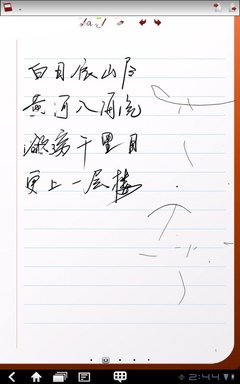 白日依山尽
黄河入海流
欲穷千里目
更上一层楼
2:44